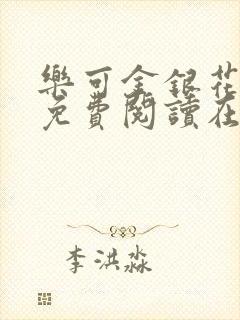 樂可金銀花
免費閱讀在
李洪淼